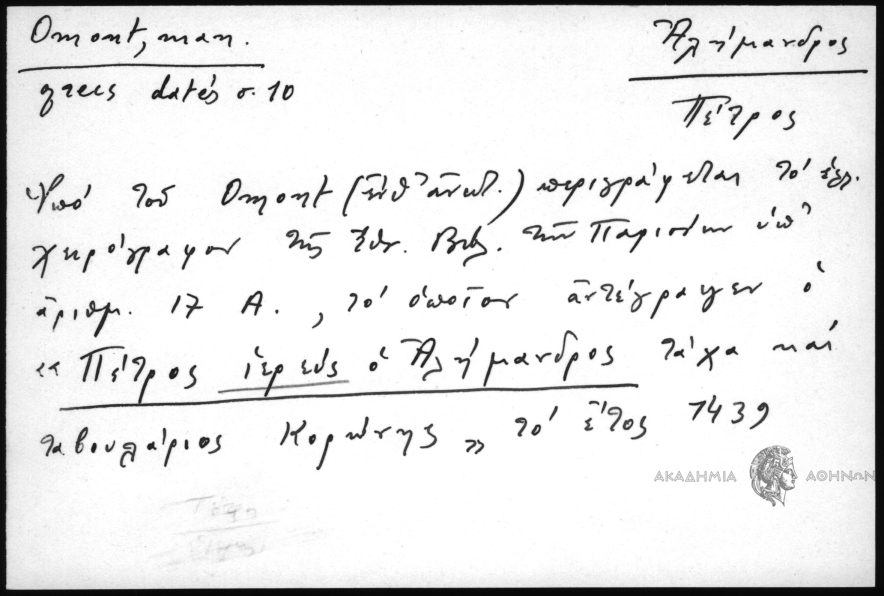 Omont, man.
grecs datés σ. 10
Ἀλήμανδρος
Πέτρος
Ὑπό τοῦ Omont (ἔνθ' ἀνωτ.) περιγράφεται τό ἑλλ.
χειρόγραφον τῆς Ἐθν. Βιβλ. τῶν Παρισίων ὑπ'
ἀριθμ. 17 Α. , τό ὁποῖον ἀντέγραψεν ὁ
«Πέτρος ἱερεύς ὁ Ἀλήμανδρος τάχα καί
ταβουλάριος Κορώνης» τό ἔτος 1439
ΑΚΑΔΗΜΙΑ ΑΘΗΝΩΝ